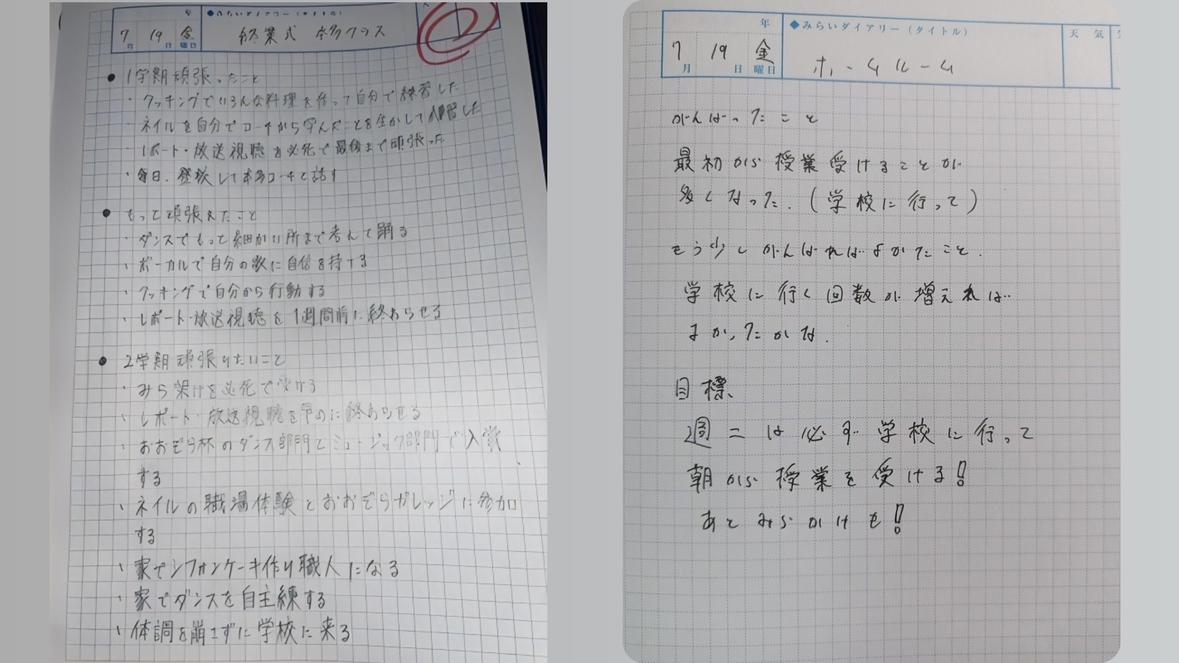 年
◆みらいダイアリー(タイトル)
7月 19日 金曜日
終業式 本多クラス
● 1学期頑張ったこと
・クッキングでいろんな料理を作って自分で練習した
・ネイルを自分でコーチから学んだことを生かして練習した
・レポート・放送視聴を必死で最後まで頑張った
・毎日、登校して本多コーチと話す
● もっと頑張れたこと
・ダンスでもって細かい所まで考えて踊る
・ボーカルで自分の歌に自信を持てる
・クッキングで自分から行動する
・レポート・放送視聴を1週間前に終わらせる
● 2学期頑張りたいこと
・みら架けを必死で受ける
・レポート・放送視聴を早めに終わらせる
・おおぞら杯のダンス部門とミュージック部門で入賞
する
・ネイルの職場体験とおおぞらガレッジに参加
する
・家でシフォンケーキ作り職人になる
・家でダンスを自主練する
・体調を崩さずに学校に来る
年
◆みらいダイアリー(タイトル)
天気
7月 19日 金曜日
ホームルーム
がんばったこと
最初から授業受けることが
多くなった.(学校に行って)
もう少しがんばればよかたこと.
学校に行く回数が増えれば
よかったかな.
目標
週二は必ず学校に行って
朝から授業を受ける!
あとみらかけも!